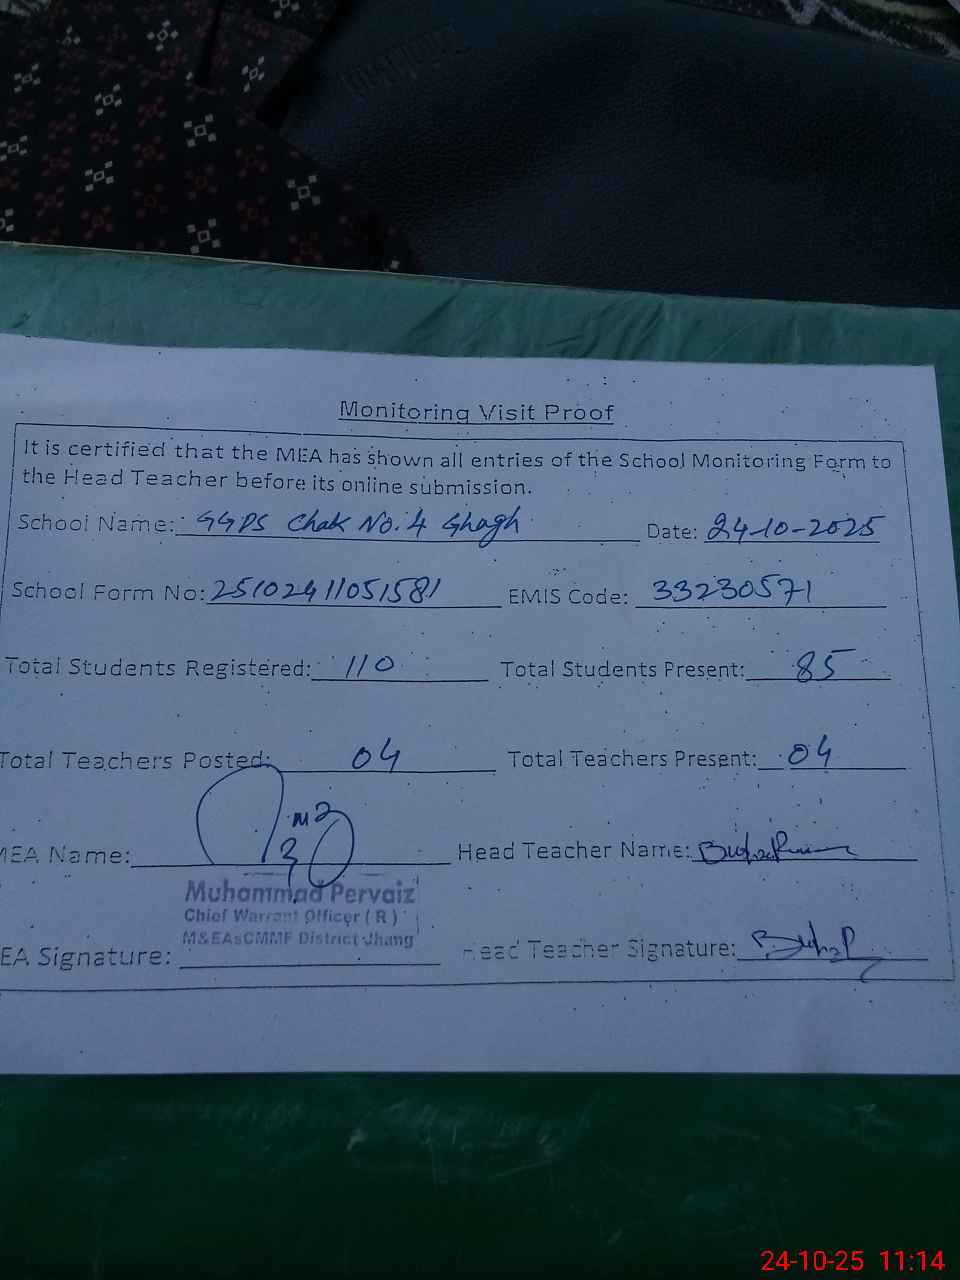 Monitoring Visit Proof
It is certified that the MEA has shown all entries of the School Monitoring Form to
the Head Teacher before its online submission.
School Name: GGPS Chak No. 4 Ghagh Date: 24-10-2025
School Form No: 25102411051581 EMIS Code: 33230571
Total Students Registered: 110 Total Students Present: 85
Total Teachers Posted: 04 Total Teachers Present: 04
MEA Name: Head Teacher Name:
Muhammad Pervaiz
Chief Warrant Officer (R)
M&EAsCMMF District Jhang
EA Signature: Head Teacher Signature:
24-10-25 11:14